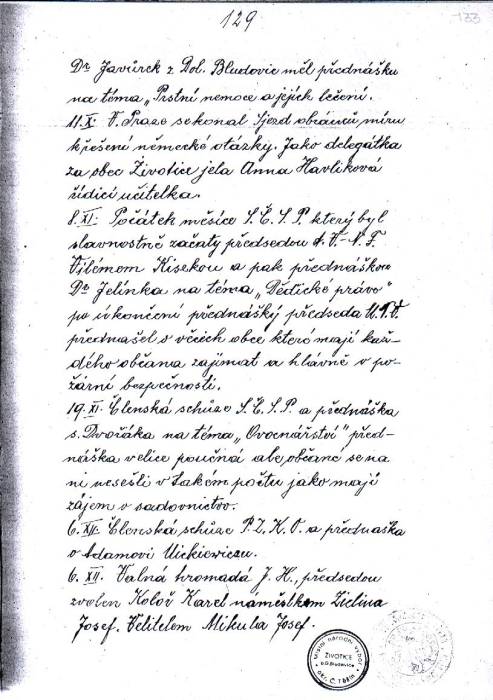 129
133
Dr Javůrek z Dol. Bludovic měl přednášku
na téma „Prstní nemoce a jejich léčení.
11.X. V. Praze se konal Sjezd obránců míru
k řešení německé otázky. Jako delegátka
za obec Životice jela Anna Havlíková
řídící učitelka.
8.XI. Počátek měsíce S.Č.S.P. který byl
slavnostně začatý předsedou A.V.-N.F.
Vilémem Kisekou a pak přednáškou
Dr Jelínka na téma „Dědické právo"
po ukončení přednášký předseda M.N.V.
přednašel o věcech obce které mají kaž-
dého občana zajímat a hlávně o po-
žární bezpečnosti.
19.XI. Členská schůze S.Č.S.P. a přednáška
s. Dvořáka na téma „Ovocnářství" před-
náška velice poučná ale občané se na
ni nesešli v takém počtu jako mají
zájem o sadovnictvo.
6.XII. Členská schůze P.Z.K.O. a přednaška
o Adamovi Mickiewiczu.
6. XII. Valná hromadá J.H., předsedou
zvolen Kolář Karel náměstkem Zielina
Josef. Velitelem Mikula Josef.
Místní národní výbor
ŽIVOTICE
o.D.Bludovice
okr. Č. Těšín